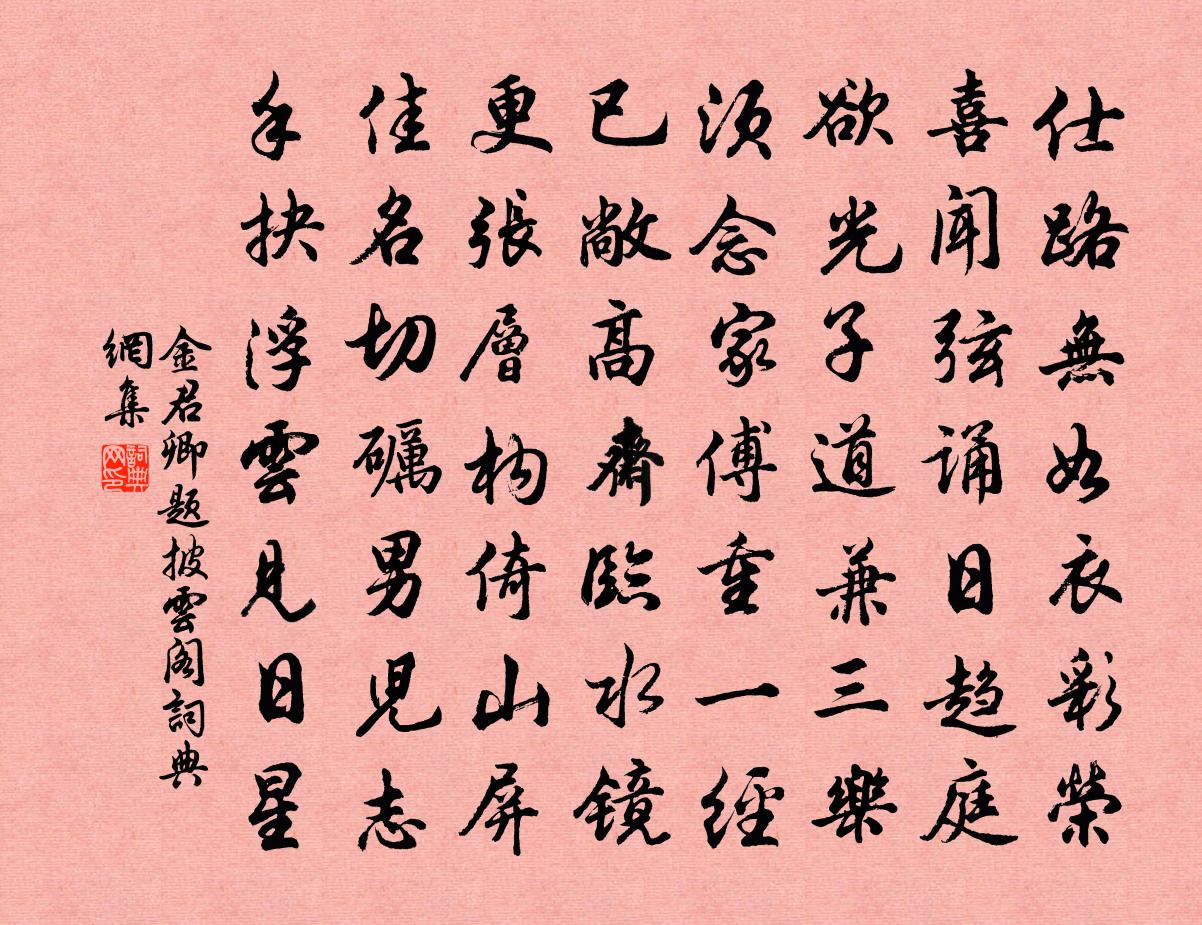 仕路無如衣彩榮
喜聞弦誦日趨庭
欲光子道兼三樂
須念家傅重一經
已敞高齋臨水鏡
更張層构倚山屏
佳名切礪男兒志
手抉浮雲見日星
金君卿題披雲閣詞典
網集
詞典
网印